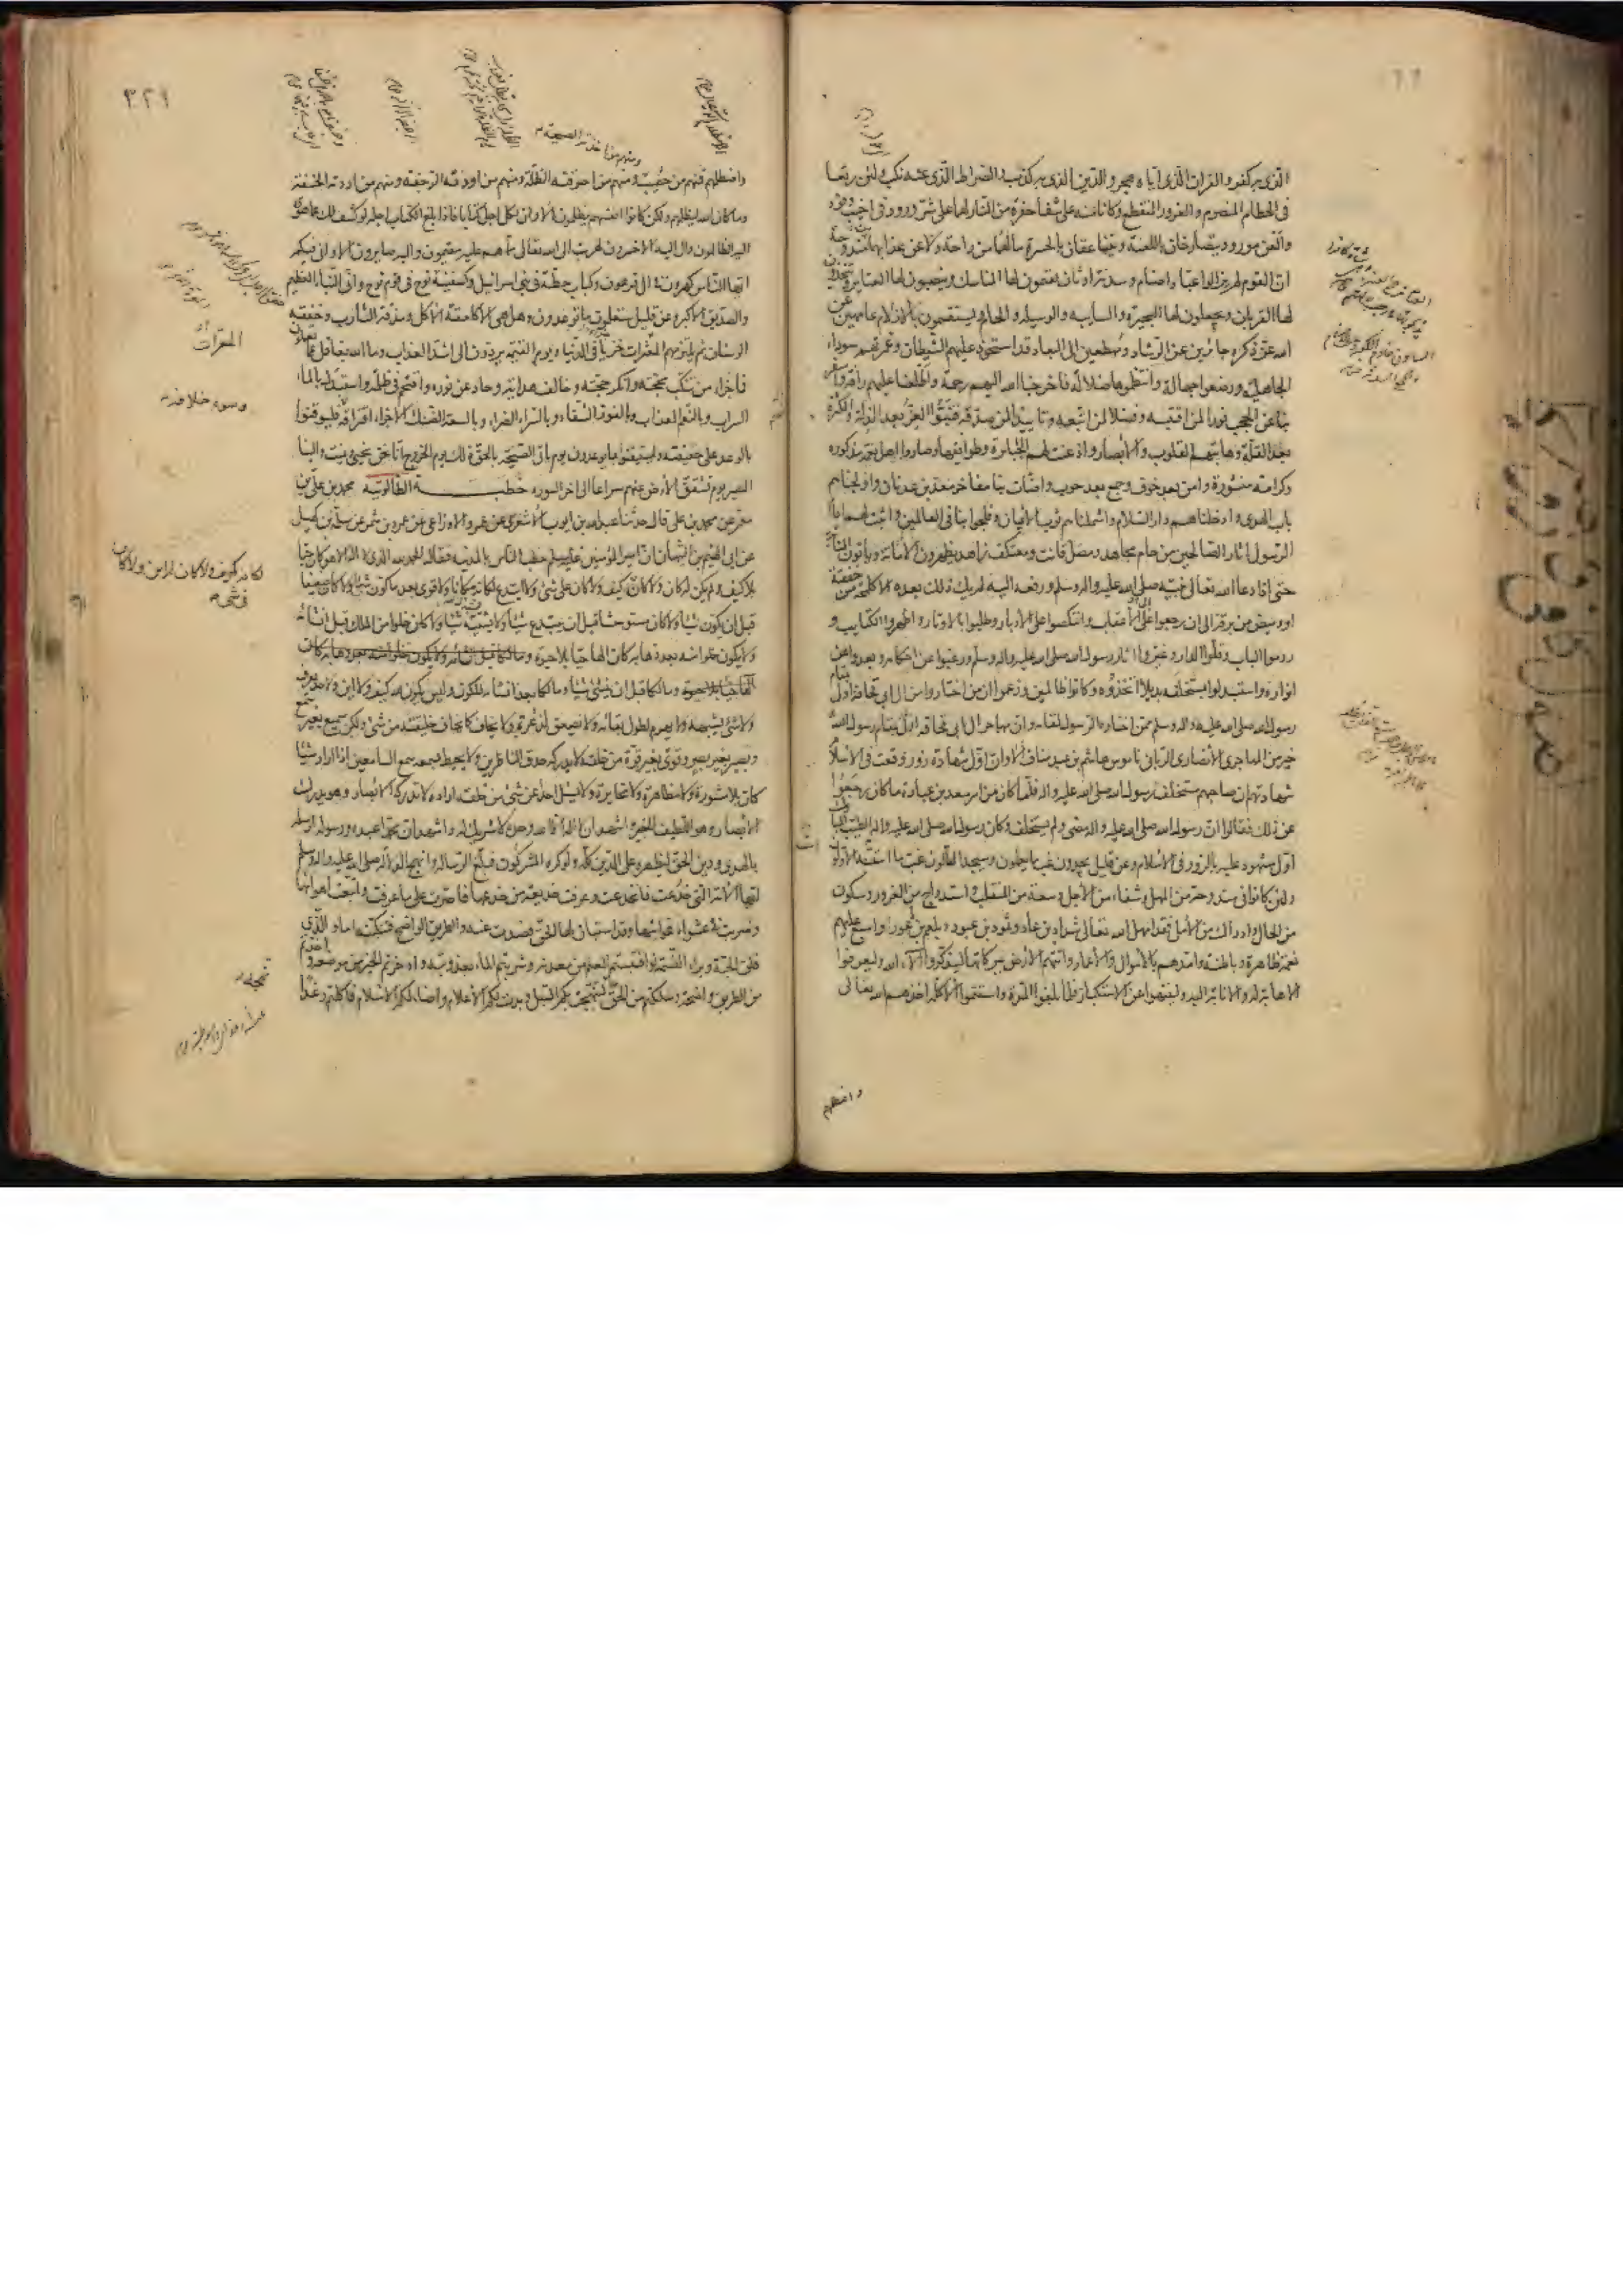 الذى به كفر والقران الذى اياه هجر والدين الذى به كذب والصراط الذى عنه نكب ولئن رتعا
فى الحطام المنصرم والغرور المنقطع وكانا منه على شفا حفرة من النار لهما على شر ورود فى اخيب وفود
والعن مورود يتصارخان باللعنة ويتناعقان بالحسرة ما لهما من راحة ولا عن عذابهما مندوحة
ان القوم لم يزالوا عباد اصنام وسدنة اوثان يقيمون لها المناسك وينصبون لها العتاير ويتخذون
لها القربان ويجعلون لها البحيرة والسايبة والوسيلة والحام ويستقسمون بالازلام عامهين عن
الله عز ذكره جائرين عن الرشاد ومهطعين الى البعاد قد استحوذ عليهم الشيطان وغمرتهم سوداء
الجاهلية ورضعوا جهالة وانتظموها ضلالة فاخرجنا الله اليهم رحمة واطلعنا عليهم رافة واسفر
بنا عن الحجب نورا لمن اقتبسه وفضلا لمن اتبعه وتاييدا لمن صدقه فتبوؤا العز بعد الذلة والكثرة
بعد القلة وهابتهم القلوب والابصار واذعنت لهم الجبابرة وطوايفها وصاروا اهل نعمة مذكورة
وكرامة منشورة وامن بعد خوف وجمع بعد حوب واضاءت بنا مفاخر معد بن عدنان واولجناهم
باب الهدى وادخلناهم دار السلام واشملناهم ثوب الايمان وفلجوا بنا فى العالمين وابدت لهم ايام
الرسول اثار الصالحين من حام مجاهد ومصل قانت ومعتكف زاهد يظهرون الامانة وياتون المثابة
حتى اذا دعا الله تعالى نبيه صلى الله عليه واله وسلم ورفعه اليه لم يك ذلك بعده الا كلمحة من خفقة
او وميض من برقة الى ان رجعوا على الاعقاب وانتكصوا على الادبار وطلبوا بالاوتار واظهروا الكتايب و
ردموا الباب وفلوا الدار وغيروا اثار رسول الله صلى الله عليه واله وسلم ورغبوا عن احكامه وبعدوا عن
انواره واستبدلوا بمستخلفه بديلا اتخذوه وكانوا ظالمين وزعموا ان من اختاروا من ال ابى قحافة اولى بمقام
رسول الله صلى الله عليه واله وسلم ممن اختاره الرسول لمقامه وان مهاجر ال ابى قحافة
خير من المهاجرى الانصارى الربانى ناموس هاشم بن عبد مناف الا وان اول شهادة زور وقعت فى الاسلام
شهادتهم ان صاحبهم مستخلف رسول الله صلى الله عليه واله فلما كان من امر سعد بن عبادة ما كان رجعوا
عن ذلك فقالوا ان رسول الله صلى الله عليه واله مضى ولم يستخلف وكان رسول الله صلى الله عليه واله الطيب المبارك
اول مشهود عليه بالزور فى الاسلام وعن قليل يجدون غب ما يعلمون وسيجد التالون غب ما اسسه الاولون
ولئن كانوا فى مندوحة من المهل وشفاء من الاجل وسعة من المنقلب واستدراج من الغرور وسكون
من الحال وادراك من الامل فقد امهل الله تعالى شداد بن عاد وثمود بن عبود وبلعم بن بعور واسبغ عليهم
نعمة ظاهرة وباطنة وامدهم بالاموال والاعمار واتتهم الارض ببركاتها ليذكروا الاء الله وليعرفوا
الاهابة له والانابة اليه ولينتهوا عن الاستكبار فلما بلغوا المدة واستتموا الاكلة اخذهم الله تعالى
واصطلمهم
٣٢١
واصطلمهم فمنهم من حصب ومنهم من احرقته الظلة ومنهم من اودته الرجفة ومنهم من اردته الخسفة
ومنهم من اخذته الصيحة
وما كان الله ليظلمهم ولكن كانوا انفسهم يظلمون الا وان لكل اجل كتابا فاذا بلغ الكتاب اجله لو كشف لك عما هوى
اليه الظالمون وال اليه الاخسرون لهربت الى الله تعالى مما هم عليه مقيمون واليه صايرون الا وانى فيكم
ايها الناس كهرون فى ال فرعون وكباب حطة فى بنى اسرائيل وكسفينة نوح فى قوم نوح وانى النبأ العظيم
والصديق الاكبر وعن قليل ستعلمون ما توعدون وهل هى الا كلعقة الاكل ومذقة الشارب وخفقة
الوسنان ثم يلزمهم المعرات خزيا فى الدنيا ويوم القيمة يردون الى اشد العذاب وما الله بغافل عما يعملون
المعرات
فما جزاء من تنكب محجته وانكر حجته وخالف هداته وحاد عن نوره واقتحم فى ظلمه واستبدل بالماء
السراب وبالنعيم العذاب وبالفوز الشقاء وبالسراء الضراء وبالسعة الضنك الا جزاء اقترافه
وسوء خلافه
فليوقنوا
بالوعد على حقيقته وليستيقنوا بما يوعدون يوم تاتى الصيحة بالحق ذلك يوم الخروج انا نحن نحيى ونميت والينا
المصير يوم تشقق الارض عنهم سراعا الى اخر السورة خطبة الطالوتية محمد بن على بن
معمر عن محمد بن على قال حدثنا عبد الله بن ايوب الاشعرى عن عمرو الاوزاعى عن عمرو بن شمر عن سلمة بن كهيل
عن ابى الهيثم بن التيهان ان امير المؤمنين عليه السلم خطب الناس بالمدينة فقال الحمد لله الذى لا اله الا هو كان حيا
بلا كيف ولم يكن له كان ولا كان لكانه كيف ولا كان له اين ولا كان فى شىء
ولا كان على شىء ولا ابتدع لكانه مكانا ولا قوى بعد ما كون شيئا ولا كان ضعيفا
قبل ان يكون شيئا ولا كان مستوحشا قبل ان يبتدع شيئا ولا يشبه شيئا ولا كان خلوا من الملك قبل انشائه
ولا يكون خلوا منه بعد ذهابه كان الها حيا بلا حيوة
ومالكا قبل ان ينشئ شيئا ومالكا بعد انشائه للكون وليس يكون لله كيف ولا اين ولا حد يعرف
ولا شىء يشبهه ولا يهرم لطول بقائه ولا يضعف لذعرة ولا يخاف كما تخاف خليقته من شىء ولكن سميع بغير سمع
وبصير بغير بصر وقوى بغير قوة من خلقه لا يدركه حدق الناظرين ولا يحيط بسمعه سمع السامعين اذا اراد شيئا
كان بلا مشورة ولا مظاهرة ولا مخابرة ولا يسئل احدا عن شىء من خلقه اراده لا تدركه الابصار وهو يدرك
الابصار وهو اللطيف الخبير واشهد ان لا اله الا الله وحده لا شريك له واشهد ان محمدا عبده ورسوله ارسله
بالهدى ودين الحق ليظهره على الدين كله ولو كره المشركون فبلغ الرسالة وانهج الدلالة صلى الله عليه واله وسلم
ايها الامة التى خدعت فانخدعت وعرفت خديعة من خدعها فاصرت على ما عرفت واتبعت اهوائها
وضربت فى عشواء غوائها وقد استبان لها الحق فصدت عنه والطريق الواضح فتنكبته اما والذى
فلق الحبة وبرء النسمة لو اقتبستم العلم من معدنه وشربتم الماء بعذوبته وادخرتم الخير من موضعه واخذتم
من الطريق واضحه وسلكتم من الحق نهجه لنهجت بكم السبل وبدت لكم الاعلام واضاء لكم الاسلام فاكلتم رغدا